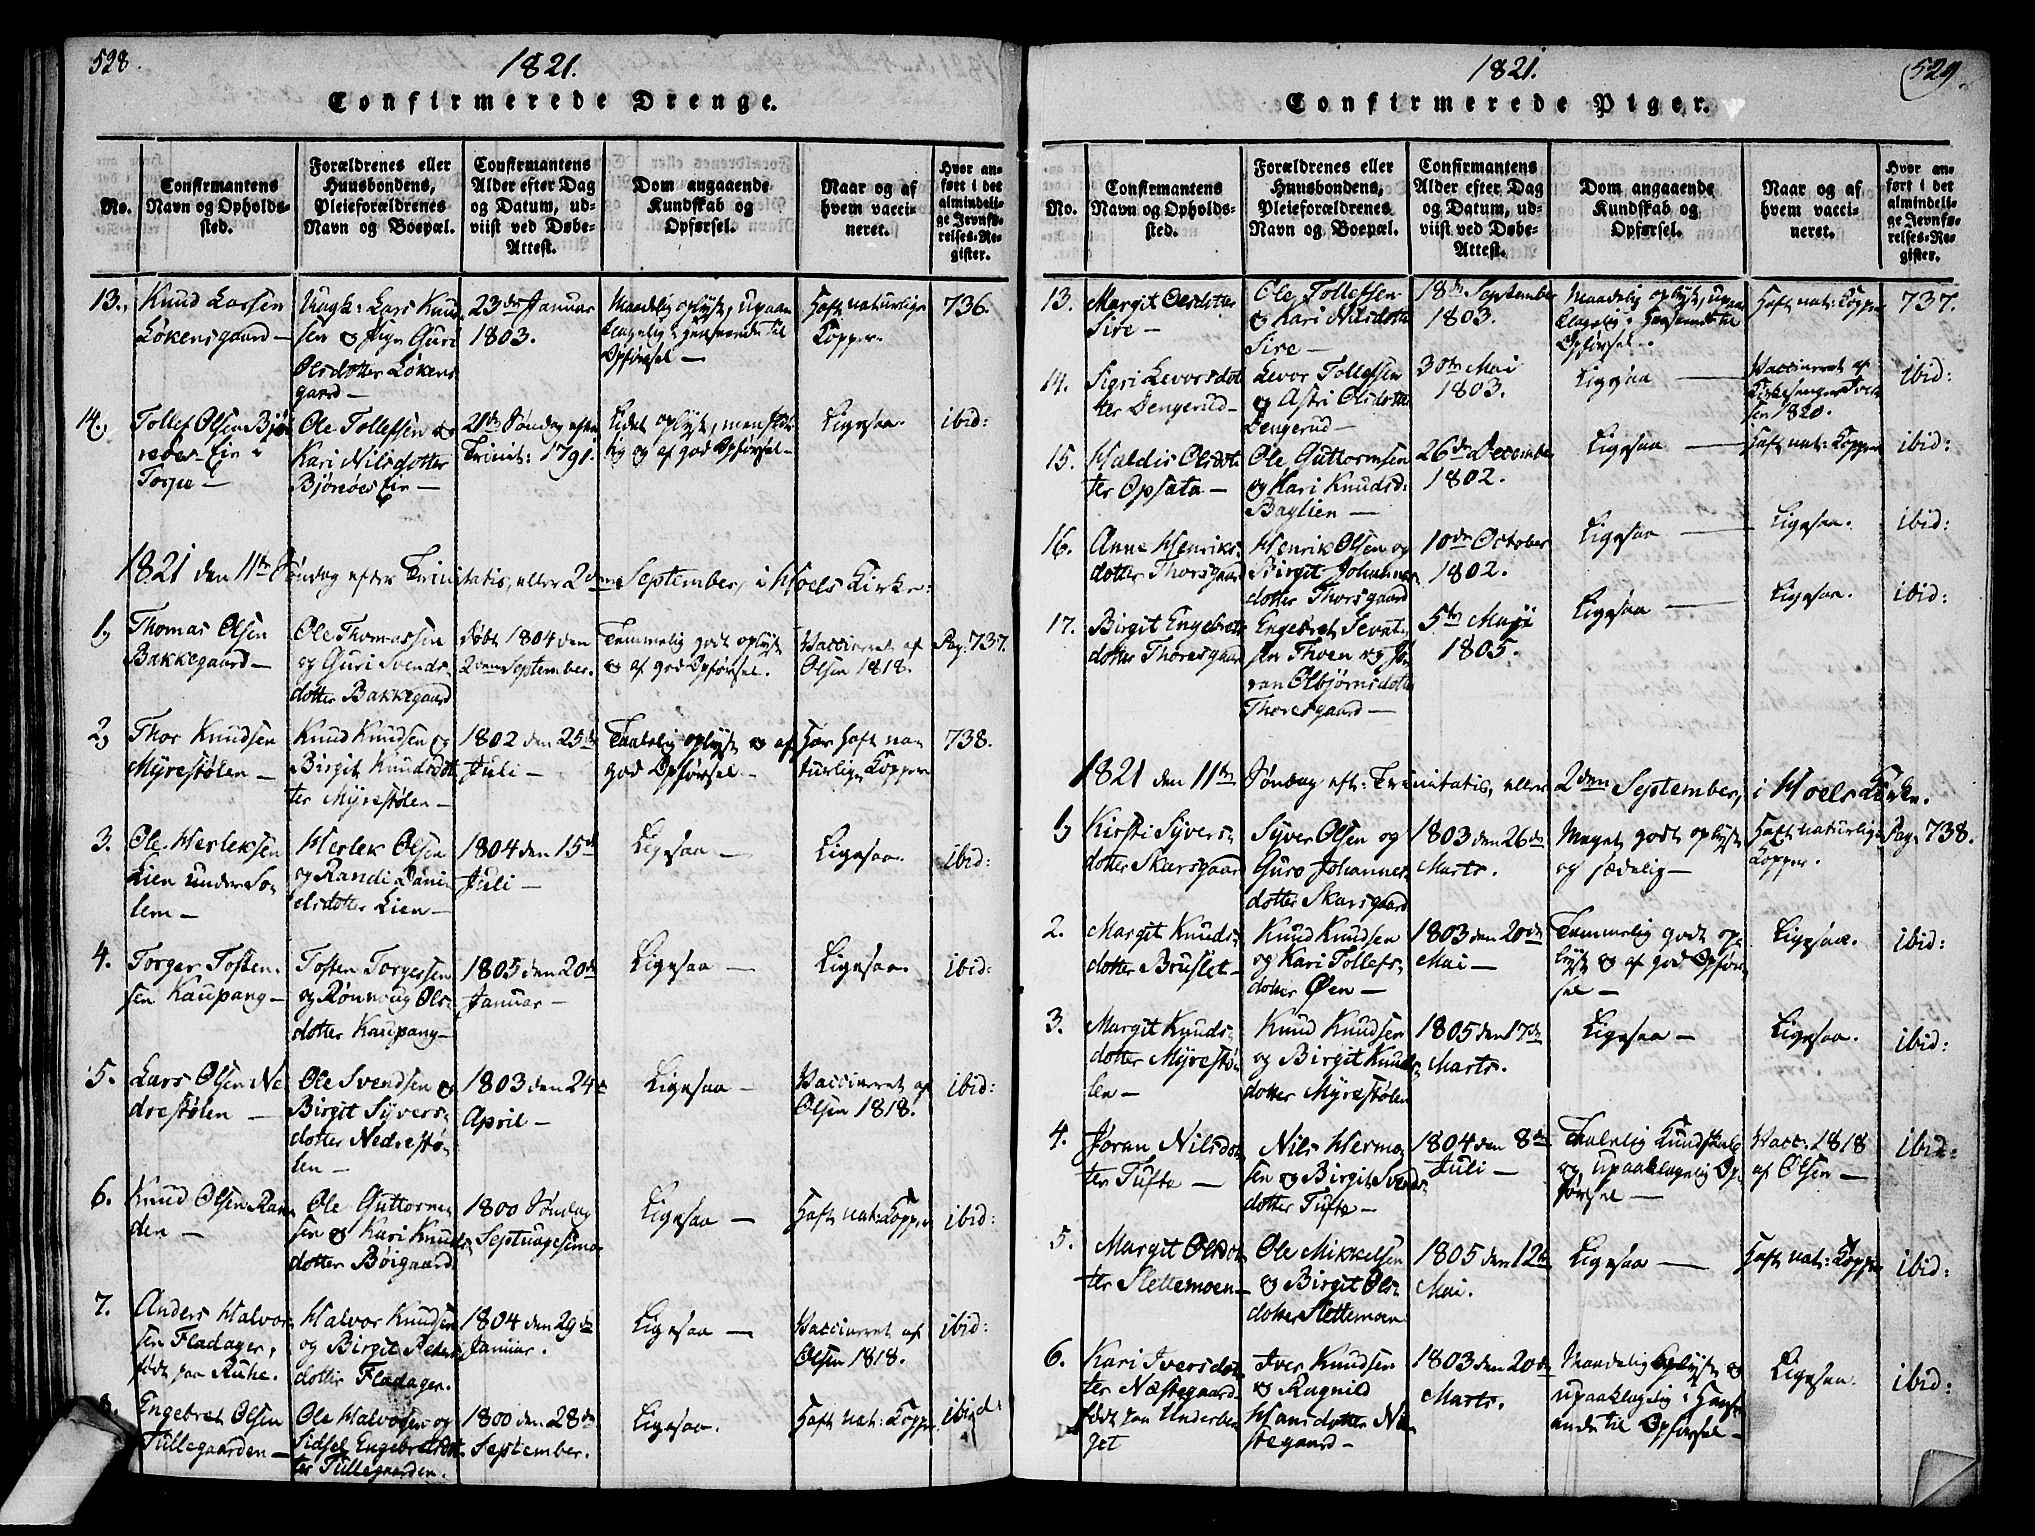 528.
1821.
Confirmerede Drenge.
No.
Confirmantens
Navn og Opholds-
sted.
Forældrenes eller
Huusbondens,
Pleieforældrenes
Navn og Boepæl.
Confirmantens
Alder efter Dag
og Datum, ud-
viist ved Døbe-
Attest.
Dom angaaende
Kundskab og
Opførsel.
Naar og af
hvem vacci-
neret.
Hvor an-
ført i det
almindeli-
ge Jevnfø-
relses-Re-
gister.
13.
Knud Larsen
Løkensgaard —
Ungk: Lars Knud
sen & Pige Guri
Olsdotter Løkens
gaard —
23de Januar
1803.
Maadelig oplyst, upaa
klagelig i Henseende til
Opførsel —
Haft naturlige
Kopper.
736.
14,
Tollef Olsen Bjø
Torpe —
Ole Tollefsen &
Kari Nilsdotter
Bjøröes Eie —
21de Søndag efter
Trinit: 1791.
Lidet oplyst, men skik
lig og af god Opførsel —
Ligesaa.
ibid:
1821 den 11te Søndag efter Trinitatis, eller 2den September, i Hoels Kirke:
1,
Thomas Olsen
Bakkegaard —
Ole Thomassen
og Guri Svends
dotter Bakkegaard
Født 1804 den
2den September.
Temmelig godt oplyst
& af god Opførsel.
Vaccineret af
Olsen 1818.
Pag. 737.
2,
Thor Knudsen
Myrestølen —
Knud Knudsen &
Birgit Knudsdot
ter Myrestølen —
1802 den 25de
Juli —
Taalelig oplyst & af
god Opførsel —
Har haft na
turlige Kopper
738.
3.
Ole Herleksen
Lien under So
lem —
Herlek Olsen
og Randi Dani
elsdotter Lien —
1804 den 15de
Juli —
Ligesaa —
Ligesaa.
ibid:
4.
Torger Tosten-
sen Kaupang —
Tosten Torgersen
og Rønnoug Ols-
dotter Kaupang —
1805 den 20de
Januar —
Ligesaa —
Ligesaa.
ibid:
5.
Lars Olsen Ne
drestølen —
Ole Svendsen &
Birgit Syvers-
dotter Nedrestø-
len —
1803 den 24de
April —
Ligesaa —
Vaccineret af
Olsen 1818.
ibid:
6.
Knud Olsen Ran
den —
Ole Guttorm
sen & Kari Knuds
dotter Bøigaard
1800 Søndag
Septuagesima
Ligesaa —
Haft nat: Kopper
ibid:
7.
Anders Halvor
sen Fladager,
født paa Ruhe.
Halvor Knudsen
og Birgit Peders
dotter Fladager.
1804 den 29de
Januar.
Ligesaa —
Vaccineret af
Olsen 1818.
ibid:
8.
Engebret Olsen
Tillegaarden —
Ole Halvorsen og
Sidsel Engebretsdot
ter Tillegaarden.
1800 den 28de
September.
Ligesaa.
Haft nat: Kopper.
ibid:
1821.
529.
Confirmerede Piger.
No.
Confirmantens
Navn og Opholds-
sted.
Forældrenes eller
Huusbondens,
Pleieforældrenes
Navn og Boepæl.
Confirmantens
Alder efter Dag
og Datum, ud-
viist ved Døbe-
Attest.
Dom angaaende
Kundskab og
Opførsel.
Naar og af
hvem vacci-
neret.
Hvor an-
ført i det
almindeli-
ge Jevnfø-
relses-Re-
gister.
13.
Margit Olsdotter
Sire —
Ole Tollefsen
& Kari Nilsdotter
Sire —
18de September
1803.
Maadelig oplyst, upaa
klagelig i Henseende til
Opførsel.
Haft nat: Kopper
737.
14.
Sigri Levorsdot
ter Dengerud —
Levor Tollefsen
og Astri Olsdotter
Dengerud —
30te Mai
1803.
Ligesaa —
Vaccineret af
Kirkesanger
sen 1820.
ibid:
15.
Haldis Olsdot
ter Opsata —
Ole Guttormsen
og Kari Knudsd:
Baglien —
26de December
1802.
Ligesaa —
Haft nat: Kopper
ibid:
16.
Anne Henriks-
dotter Thorsgaard
Henrik Olsen og
Birgit Johannes
dotter Thorsgaard
10de October
1802.
Ligesaa —
Ligesaa.
ibid:
17.
Birgit Engebrets
dotter Thoresgaard
Engebret Sevat-
sen Thoen og Jø
ran Olbjørnsdotter
Thoresgaard —
5te Maji
1805.
Ligesaa —
Ligesaa.
ibid:
1821 den 11te Søndag eft: Trinitatis, eller 2den September, i Hoels Kirke.
1,
Kirsti Syvers-
dotter Skarsgaard
Syver Olsen og
Guro Johannes
dotter Skarsgaard
1803 den 26de
Marts.
Meget godt oplyst
og sædelig —
Haft naturlige
Kopper.
Pag. 738.
2.
Margit Knuds-
dotter Bruslet —
Knud Knudsen
og Kari Tollefs-
dotter Øen —
1803 den 20de
Mai —
Temmelig godt op-
lyst & af god Opfør-
sel —
Ligesaa.
ibid:
3.
Margit Knuds-
dotter Myrestø-
len —
Knud Knudsen
og Birgit Knuds
dotter Myrestølen
1805 den 17de
Marts.
Ligesaa —
Ligesaa.
ibid:
4.
Jøran Nilsdot
ter Tufte —
Nils Herm
sen & Birgit Svends
dotter Tufte —
1804 den 8de
Juli —
Taalelig Kundskab
og upaaklagelig Op
førsel —
Vacc: 1818
af Olsen —
ibid:
5.
Margit Olsdot
ter Slettemoen —
Ole Mikkelsen
& Birgit Ols-
dotter Slettemoen
1805 den 12te
Mai.
Ligesaa —
Haft nat: Kopper
ibid:
6.
Kari Iversdot
ter Næstegaard
født paa Underber
get
Iver Knudsen
& Ragnild
Hansdotter Næ
stegaard —
1803 den 20de
Marts.
Maadelig oplyst &
upaaklagelig i Hense
ende til Opførsel —
Ligesaa.
ibid: